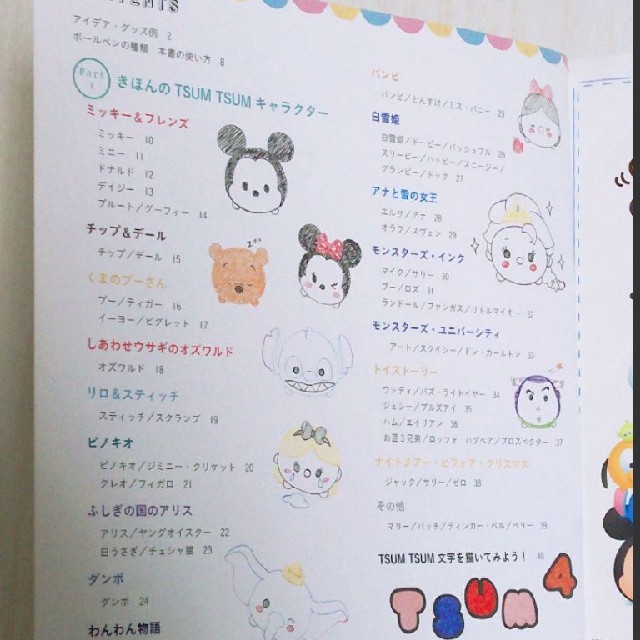 アイデア・グッズ例 2
ボールペンの種類 本書の使い方 8
Part 1
きほんの TSUM TSUM キャラクター
ミッキー&フレンズ
ミッキー 10
ミニー 11
ドナルド 12
デイジー 13
プルート/グーフィー 14
チップ&デール
チップ/デール 15
くまのプーさん
プー/ティガー 16
イーヨー/ピグレット 17
しあわせウサギのオズワルド
オズワルド 18
リロ&スティッチ
スティッチ/スクランプ 19
ピノキオ
ピノキオ/ジミニー・クリケット 20
クレオ/フィガロ 21
ふしぎの国のアリス
アリス/ヤングオイスター 22
白うさぎ/チェシャ猫 23
ダンボ
ダンボ 24
わんわん物語
バンビ
バンビ/とんすけ/ミス・バニー 25
白雪姫
白雪姫/ドーピー/バッシュフル 26
スリーピー/ハッピー/スニージー/
グランピー/ドック 27
アナと雪の女王
エルサ/アナ 28
オラフ/スヴェン 29
モンスターズ・インク
マイク/サリー 30
ブー/ロズ 31
ランドール/ファンガス/リトルマイキー 32
モンスターズ・ユニバーシティ
アート/スクイシー/ドン・カールトン 33
トイストーリー
ウッディ/バズ・ライトイヤー 34
ジェシー/ブルズアイ 35
ハム/エイリアン 36
お豆3兄弟/ロッツォ・ハグベア/プロスペクター 37
ナイトメアー・ビフォア・クリスマス
ジャック/サリー/ゼロ 38
その他
マリー/パッチ/ティンカー・ベル/ペリー 39
TSUM TSUM 文字を描いてみよう! 40
TSUM 4